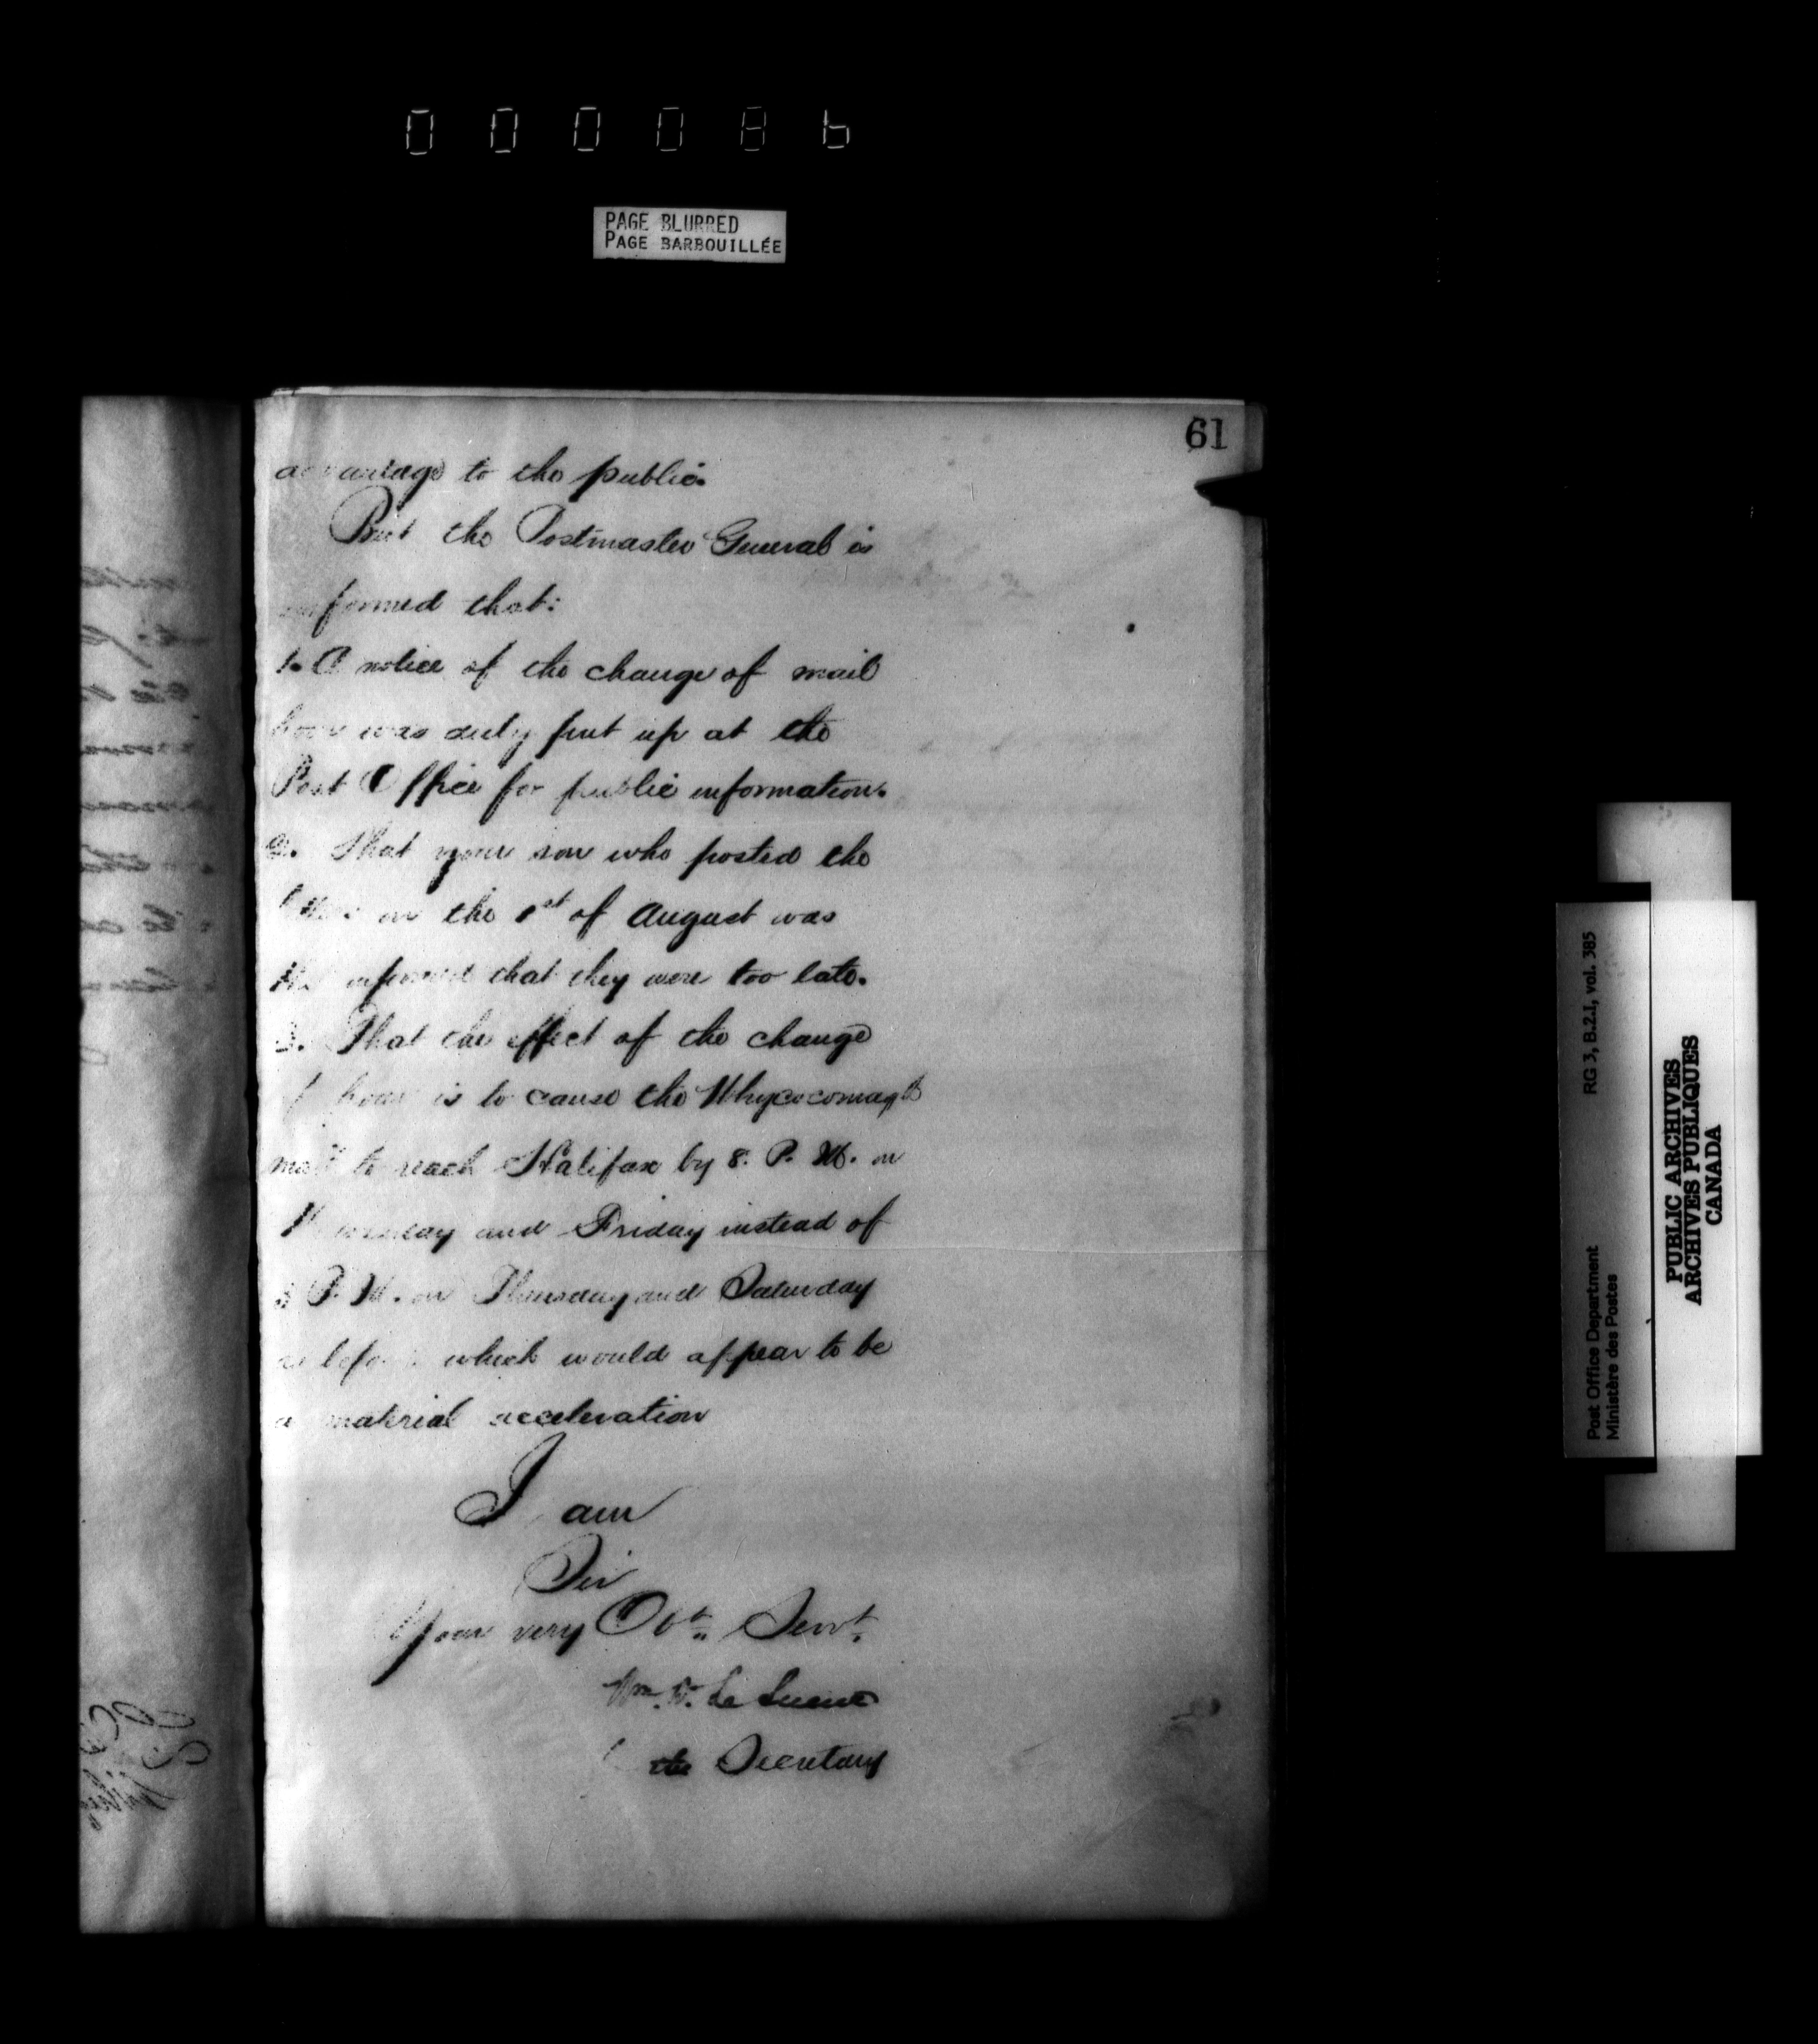 000086
PAGE BLURRED
PAGE BARBOUILLÉE
61
advantage to the public.
But the Postmaster General is
informed that:
1. A notice of the change of mail
hour was duly put up at the
Post Office for public information.
2. That your son who posted the
letters on the 1st of August was
informed that they were too late.
3. That the effect of the change
of hour is to cause the Whycocomagh
mail to reach Halifax by 8. P. M. on
and Friday instead of
P. M. on Thursday and Saturday
as before which would appear to be
a material acceleration
I am
Sir
Your very Obt. Servt.
Wm. D. Le Sueur
the Secretary
Post Office Department RG 3, B.2.1, vol. 385
Ministère des Postes
PUBLIC ARCHIVES
ARCHIVES PUBLIQUES
CANADA